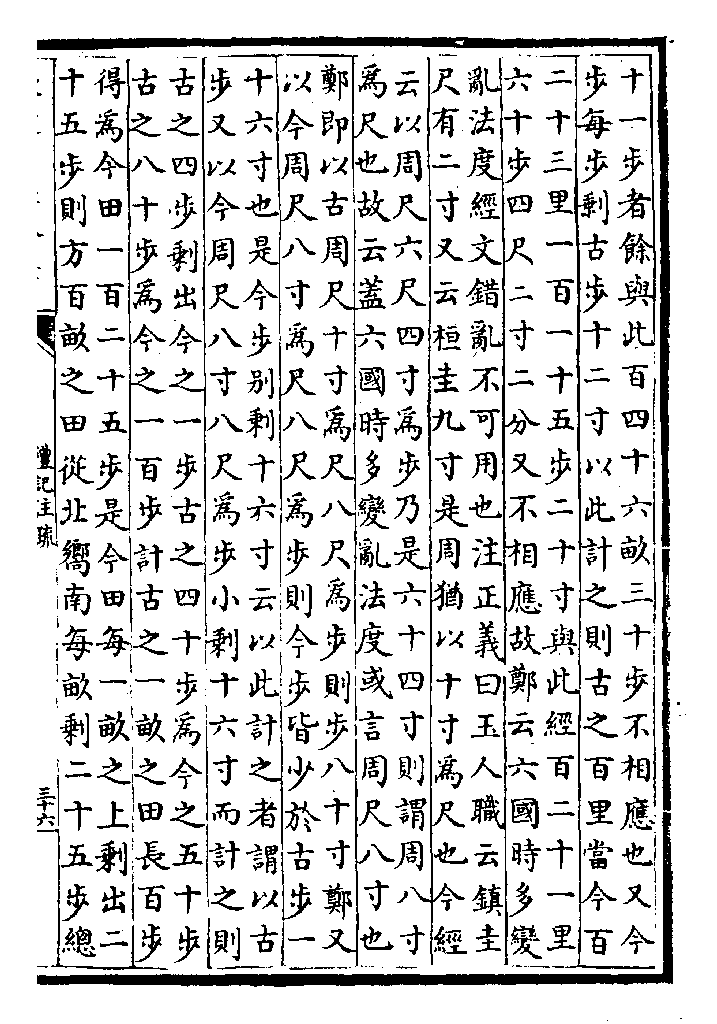 十一步者餘與此百四十六畝三十步不相應也又今
步每步剩古步十二寸以此計之則古之百里當今百
二十三里一百一十五步二十寸與此經百二十一里
六十步四尺二寸二分又不相應故鄭云六國時多變
亂法度經文錯亂不可用也注正義曰玉人職云鎮圭
尺有二寸又云桓圭九寸是周猶以十寸為尺也今經
云以周尺六尺四寸為步乃是六十四寸則謂周八寸
為尺也故云蓋六國時多變亂法度或言周尺八寸也
鄭即以古周尺十寸為尺八尺為步則步八十寸鄭又
以今周尺八寸為尺八尺為步則今步皆少於古步一
十六寸也是今步别剩十六寸云以此計之者謂以古
步又以今周尺八寸八尺為步小剩十六寸而計之則
古之四步剩出今之一步古之四十步為今之五十步
古之八十步為今之一百步計古之一畝之田長百步
得為今田一百二十五步是今田每一畝之上剩出二
十五步則方百畝之田從北嚮南每畝剩二十五步總
禮記注疏
三十六